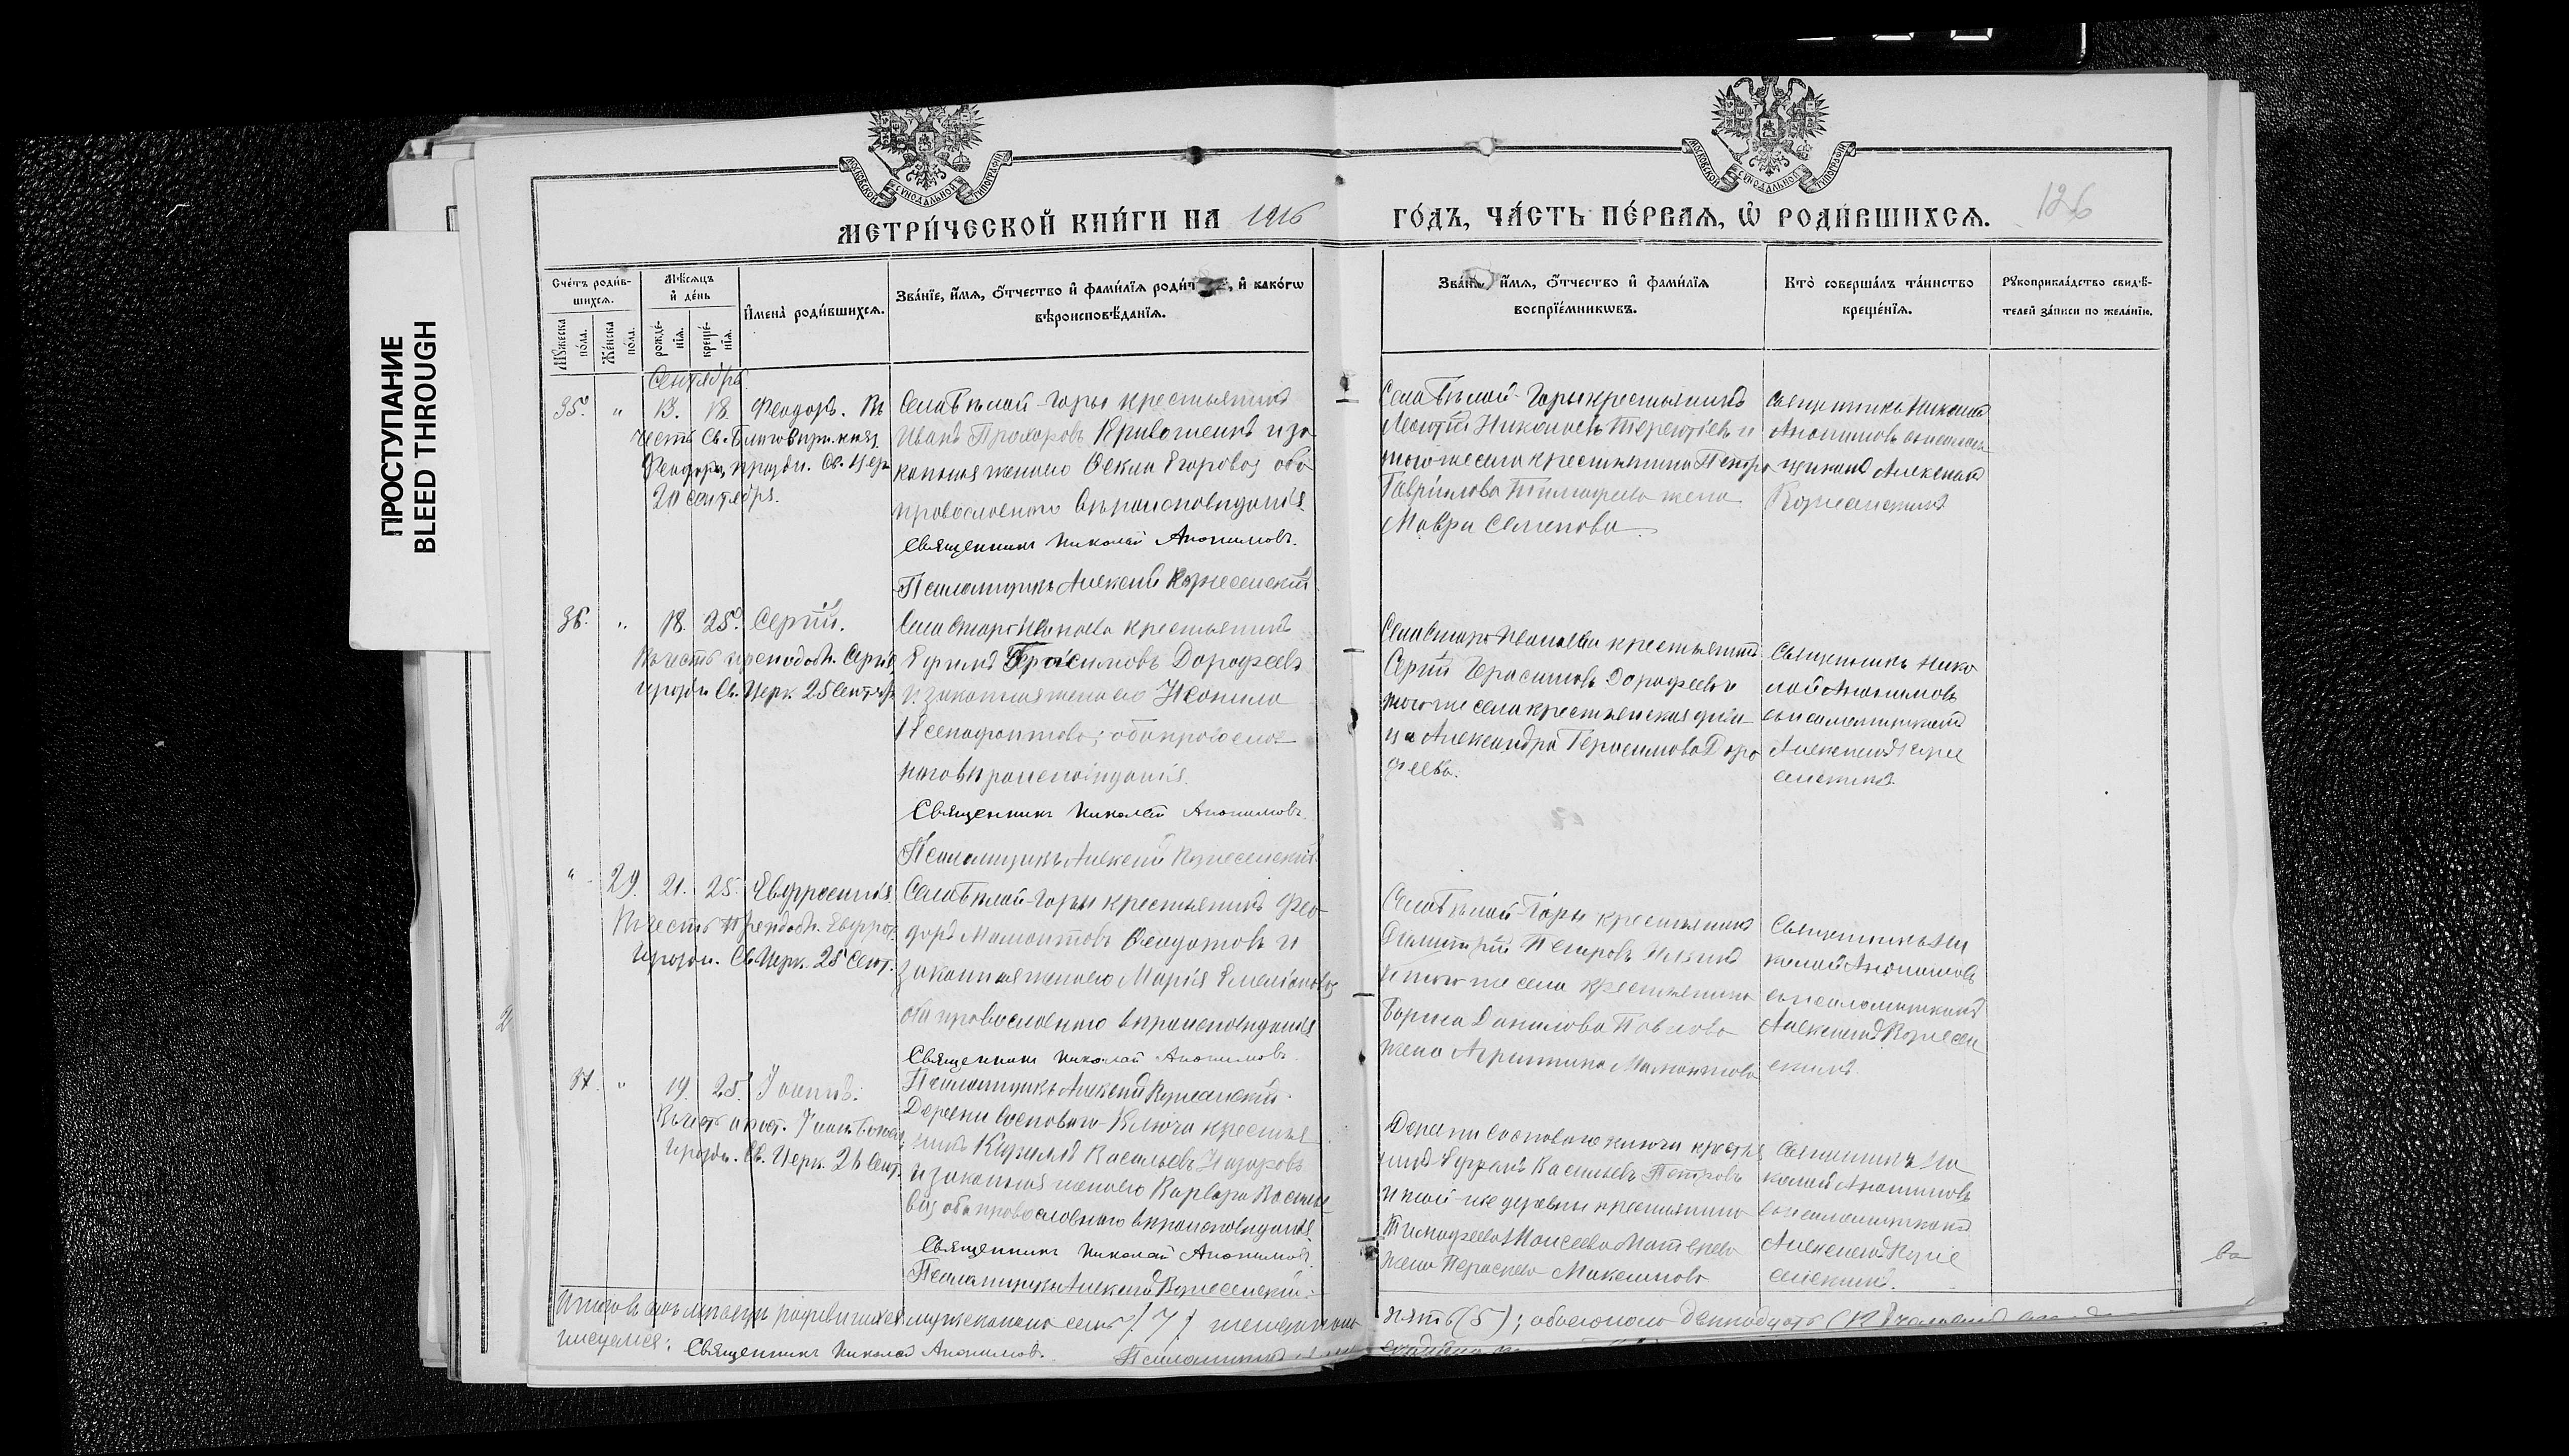 МЕТРИ́ЧЕСКОЙ КНИ́ГИ НА 1916 ГО́ДЪ, ЧА́СТЬ ПЕ́РВАЯ, Ѡ РОДИ́ВШИХСЯ.
126
ПРОСТУПАНИЕ
BLEED THROUGH
МОСКОВСКОЙ СѴНОДАЛЬНОЙ ТИПОГРАФІИ
МОСКОВСКОЙ СѴНОДАЛЬНОЙ ТИПОГРАФІИ
Сче́тъ роди́в-
шихся.
Му́жеска по́ла.
Же́нска по́ла.
Мѣ́сяцъ
и҆ де́нь
рожде́-
нїя.
креще́-
нїя.
И҆мена̀ роди́вшихся.
Зва́нїе, и҆́мя, ѻ҆́тчество и҆ фами́лїя роди́т , и҆ како́гѡ
вѣроисповѣ́данїя.
Зва́нї и҆́мя, ѻ҆́тчество и҆ фами́лїя
воспрїе́мникѡвъ.
Кто̀ соверша́лъ та́инство
креще́нїя.
Рꙋкоприкла́дство свидѣ́-
телей за́писи по жела́нїю.
Сентябрь
35. " 13. 18. Феодоръ. Въ
честь Св. Благовѣрн. княз.
Феодора, праздн. Св. Церк.
Села Бѣлой-Горы крестьянинъ
Иванъ Прохоровъ и за-
конная жена его Ѳекла Егорова, оба
православнаго вѣроисповѣданія.
Священникъ Николай Анонимовъ.
Псаломщикъ Алексій Вознесенскій.
Села Бѣлой-Горы крестьянинъ
Леонтій Николаевъ Терентіевъ и
того же села крестьянина Петра
Гаврилова Тимофеева жена
Мавра Семенова.
Священникъ Николай
Анонимовъ съ псалом-
щикомъ Алексіемъ
Вознесенскимъ
36. " 18. 25. Сергій.
Въ честь преподобн. Сергія
праздн. Св. Церк. 25 Сентяб.
крестьянинъ
Ефимъ Герасимовъ Дорофеевъ
и законная жена его Неонила
Ксенофонтова; оба православ-
наго вѣроисповѣданія.
Священникъ Николай Анонимовъ.
Псаломщикъ Алексій Вознесенскій.
крестьянинъ
Сергій Герасимовъ Дорофеевъ и
того же села крестьянская дѣви-
ца Александра Герасимова Доро-
феева.
Священникъ Нико-
лай Анонимовъ
съ псаломщикомъ
Алексіемъ Возне-
сенскимъ.
" 29. 21. 25. Евфросинія.
Въ честь Преподобн. Евфрос.
праздн. Св. Церк. 25 Сент.
Села Бѣлой-Горы крестьянинъ Фео-
доръ Мамонтовъ и
законная жена его Марія Емеліанова,
оба православнаго вѣроисповѣданія
Священникъ Николай Анонимовъ.
Псаломщикъ Алексій Вознесенскій.
Села Бѣлой-Горы крестьянинъ
Димитрій Петровъ Ильинъ
и того же села крестьянина
Бориса Данилова Павлова
жена Агрипина Мамонтова
Священникъ Ни-
колай Анонимовъ
съ псаломщикомъ
Алексіемъ Вознесен-
скимъ.
37. " 19. 25. Іоаннъ.
Въ честь апост. Іоан. Богосл.
праздн. Св. Церк. 26 Сент.
Деревни Сосноваго-Ключа крестья-
нинъ Кириллъ Васильевъ Назаровъ
и законная жена его Варвара Василье-
ва; оба православнаго вѣроисповѣданія.
Священникъ Николай Анонимовъ.
Псаломщикъ Алексій Вознесенскій.
Деревни Сосноваго ключа крестья-
нинъ Ефремъ Васильевъ Петровъ
и той-же деревни крестьянина
Тимофеева Моисеева Матвеева
жена Параскева Максимова
Священникъ Ни-
колай Анонимовъ
съ псаломщикомъ
Алексіемъ Возне-
сенскимъ.
ва
Итого въ мѣсяцѣ родившихся мужескаго пола семь (7) женскаго
пять (5); обоего пола двенадцать (12)
Священникъ Николай Анонимовъ.
Псаломщикъ